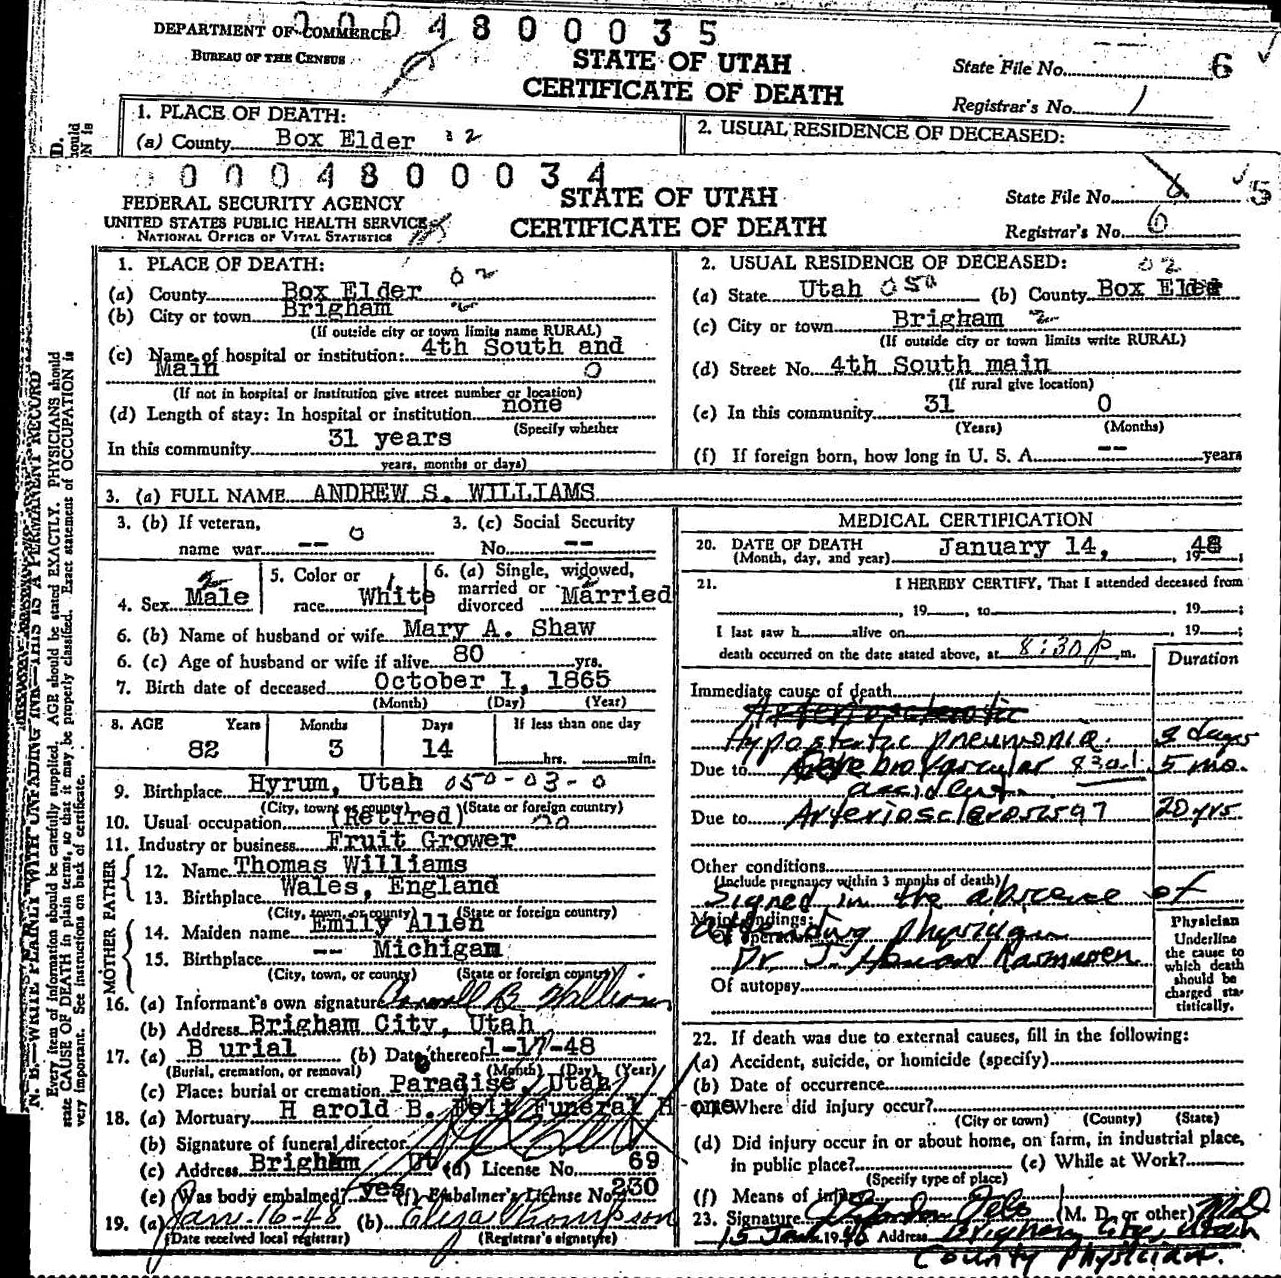 0 0 0 4 8 0 0 0 3 5
DEPARTMENT OF COMMERCE
BUREAU OF THE CENSUS
STATE OF UTAH
CERTIFICATE OF DEATH
State File No. 6
Registrar's No. 1
1. PLACE OF DEATH:
(a) County Box Elder 02
2. USUAL RESIDENCE OF DECEASED:
0 0 0 4 8 0 0 0 3 4
FEDERAL SECURITY AGENCY
UNITED STATES PUBLIC HEALTH SERVICE
NATIONAL OFFICE OF VITAL STATISTICS
STATE OF UTAH
CERTIFICATE OF DEATH
State File No. 5
Registrar's No. 6
N. B.—WRITE PLAINLY WITH UNFADING INK—THIS IS A PERMANENT RECORD
Every item of information should be carefully supplied. AGE should be stated EXACTLY. PHYSICIANS should
state CAUSE OF DEATH in plain terms, so that it may be properly classified. Exact statement of OCCUPATION is
very important. See instructions on back of certificate.
1. PLACE OF DEATH:
(a) County Box Elder 02
(b) City or town Brigham
(If outside city or town limits name RURAL)
(c) Name of hospital or institution: 4th South and
Main 0
(If not in hospital or institution give street number or location)
(d) Length of stay: In hospital or institution none
(Specify whether
In this community 31 years
years, months or days)
2. USUAL RESIDENCE OF DECEASED: 02
(a) State Utah 050 (b) County Box Elder
(c) City or town Brigham 2
(If outside city or town limits write RURAL)
(d) Street No. 4th South main
(If rural give location)
(e) In this community 31 0
(Years) (Months)
(f) If foreign born, how long in U. S. A. -- years
3. (a) FULL NAME ANDREW S. WILLIAMS
3. (b) If veteran,
name war -- 0
3. (c) Social Security
No. --
4. Sex Male 2
5. Color or
race White 1
6. (a) Single, widowed,
married or
divorced Married
6. (b) Name of husband or wife Mary A. Shaw
6. (c) Age of husband or wife if alive 80 yrs.
7. Birth date of deceased October 1, 1865
(Month) (Day) (Year)
8. AGE Years Months Days If less than one day
82 3 14 hrs. min.
9. Birthplace Hyrum, Utah 050-03-0
(City, town, or county) (State or foreign country)
10. Usual occupation (Retired)
11. Industry or business Fruit Grower
FATHER
12. Name Thomas Williams
13. Birthplace Wales, England
(City, town, or county) (State or foreign country)
MOTHER
14. Maiden name Emily Allen
15. Birthplace -- Michigan
(City, town, or county) (State or foreign country)
16. (a) Informant's own signature B. Williams
(b) Address Brigham City, Utah
17. (a) B urial (b) Date thereof 1-17-48
(Burial, cremation, or removal) (Month) (Day) (Year)
(c) Place: burial or cremation Paradise, Utah
18. (a) Mortuary H arold B. Felt Funeral H ome
(b) Signature of funeral director
(c) Address Brigham Ut (d) License No. 69
(e) Was body embalmed? yes (f) Embalmer's License No. 230
19. (a) Jan.-16-48 (b) Eliza Thompson
(Date received local registrar) (Registrar's signature)
MEDICAL CERTIFICATION
20. DATE OF DEATH
(Month, day, and year) January 14, 1948;
21. I HEREBY CERTIFY, That I attended deceased from
, 19 , to , 19 ;
I last saw h alive on , 19 ;
death occurred on the date stated above, at 8:30 p. m.
Duration
Immediate cause of death
Arteriosclerotic
Hypostatic pneumonia. 2 days
Due to Cerebro Vascular 830.1 5 mo.
accident
Due to Arteriosclerosis 97 20 yrs.
Other conditions
(Include pregnancy within 3 months of death)
Signed in the absence of
Major findings:
attending physician
Of operations
Dr. J. Howard Rasmussen
Of autopsy
Physician
Underline
the cause to
which death
should be
charged sta-
tistically.
22. If death was due to external causes, fill in the following:
(a) Accident, suicide, or homicide (specify)
(b) Date of occurrence
(c) Where did injury occur?
(City or town) (County) (State)
(d) Did injury occur in or about home, on farm, in industrial place,
in public place? (e) While at Work?
(Specify type of place)
(f) Means of injury
23. Signature (M. D. or other) MD
15 Jan. 1948 Address Brigham City, Utah
County Physician.